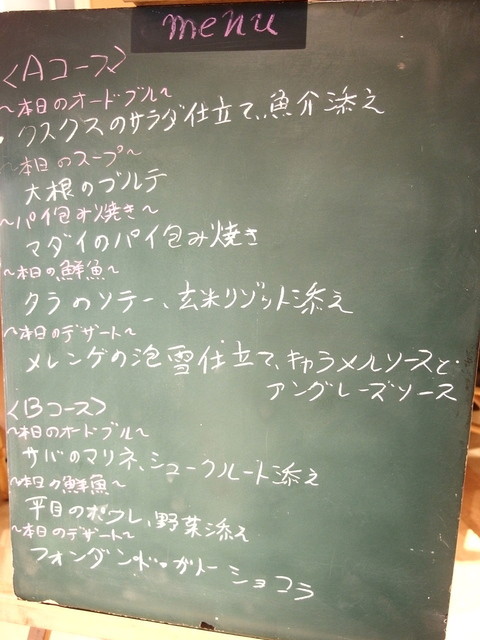 menu
<Aコース>
~本日のオードブル~
クスクスのサラダ仕立て、魚介添え
本日のスープ~
大根のブルテ
~パイ包み焼き~
マダイのパイ包み焼き
~本日の鮮魚~
タラのソテー、玄米リゾット添え
~本日のデザート~
メレンゲの泡雪仕立て、キャラメルソースと
アングレーズソース
<Bコース>
~本日のオードブル~
サバのマリネ、シュークルート添え
~本日の鮮魚~
平目のポワレ、野菜添え
~本日のデザート~
フォンダン・ド・ガトーショコラ